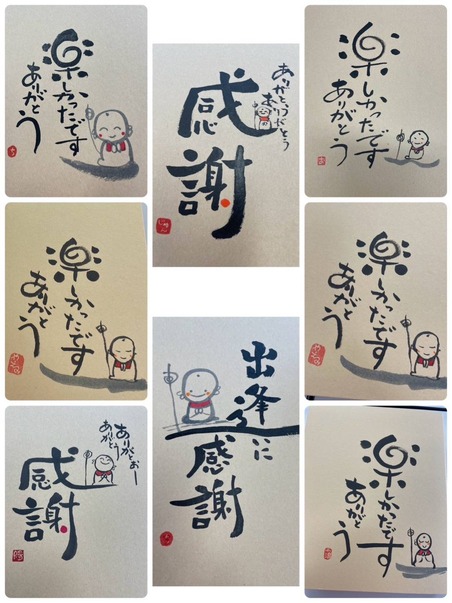 楽しかったです
ありがとう
感謝
楽しかったです
ありがとう
楽しかったです
ありがとう
楽しかったです
ありがとう
ありがとおー
ありがとう
感謝
出逢に
感謝
楽しかったです
ありがとう